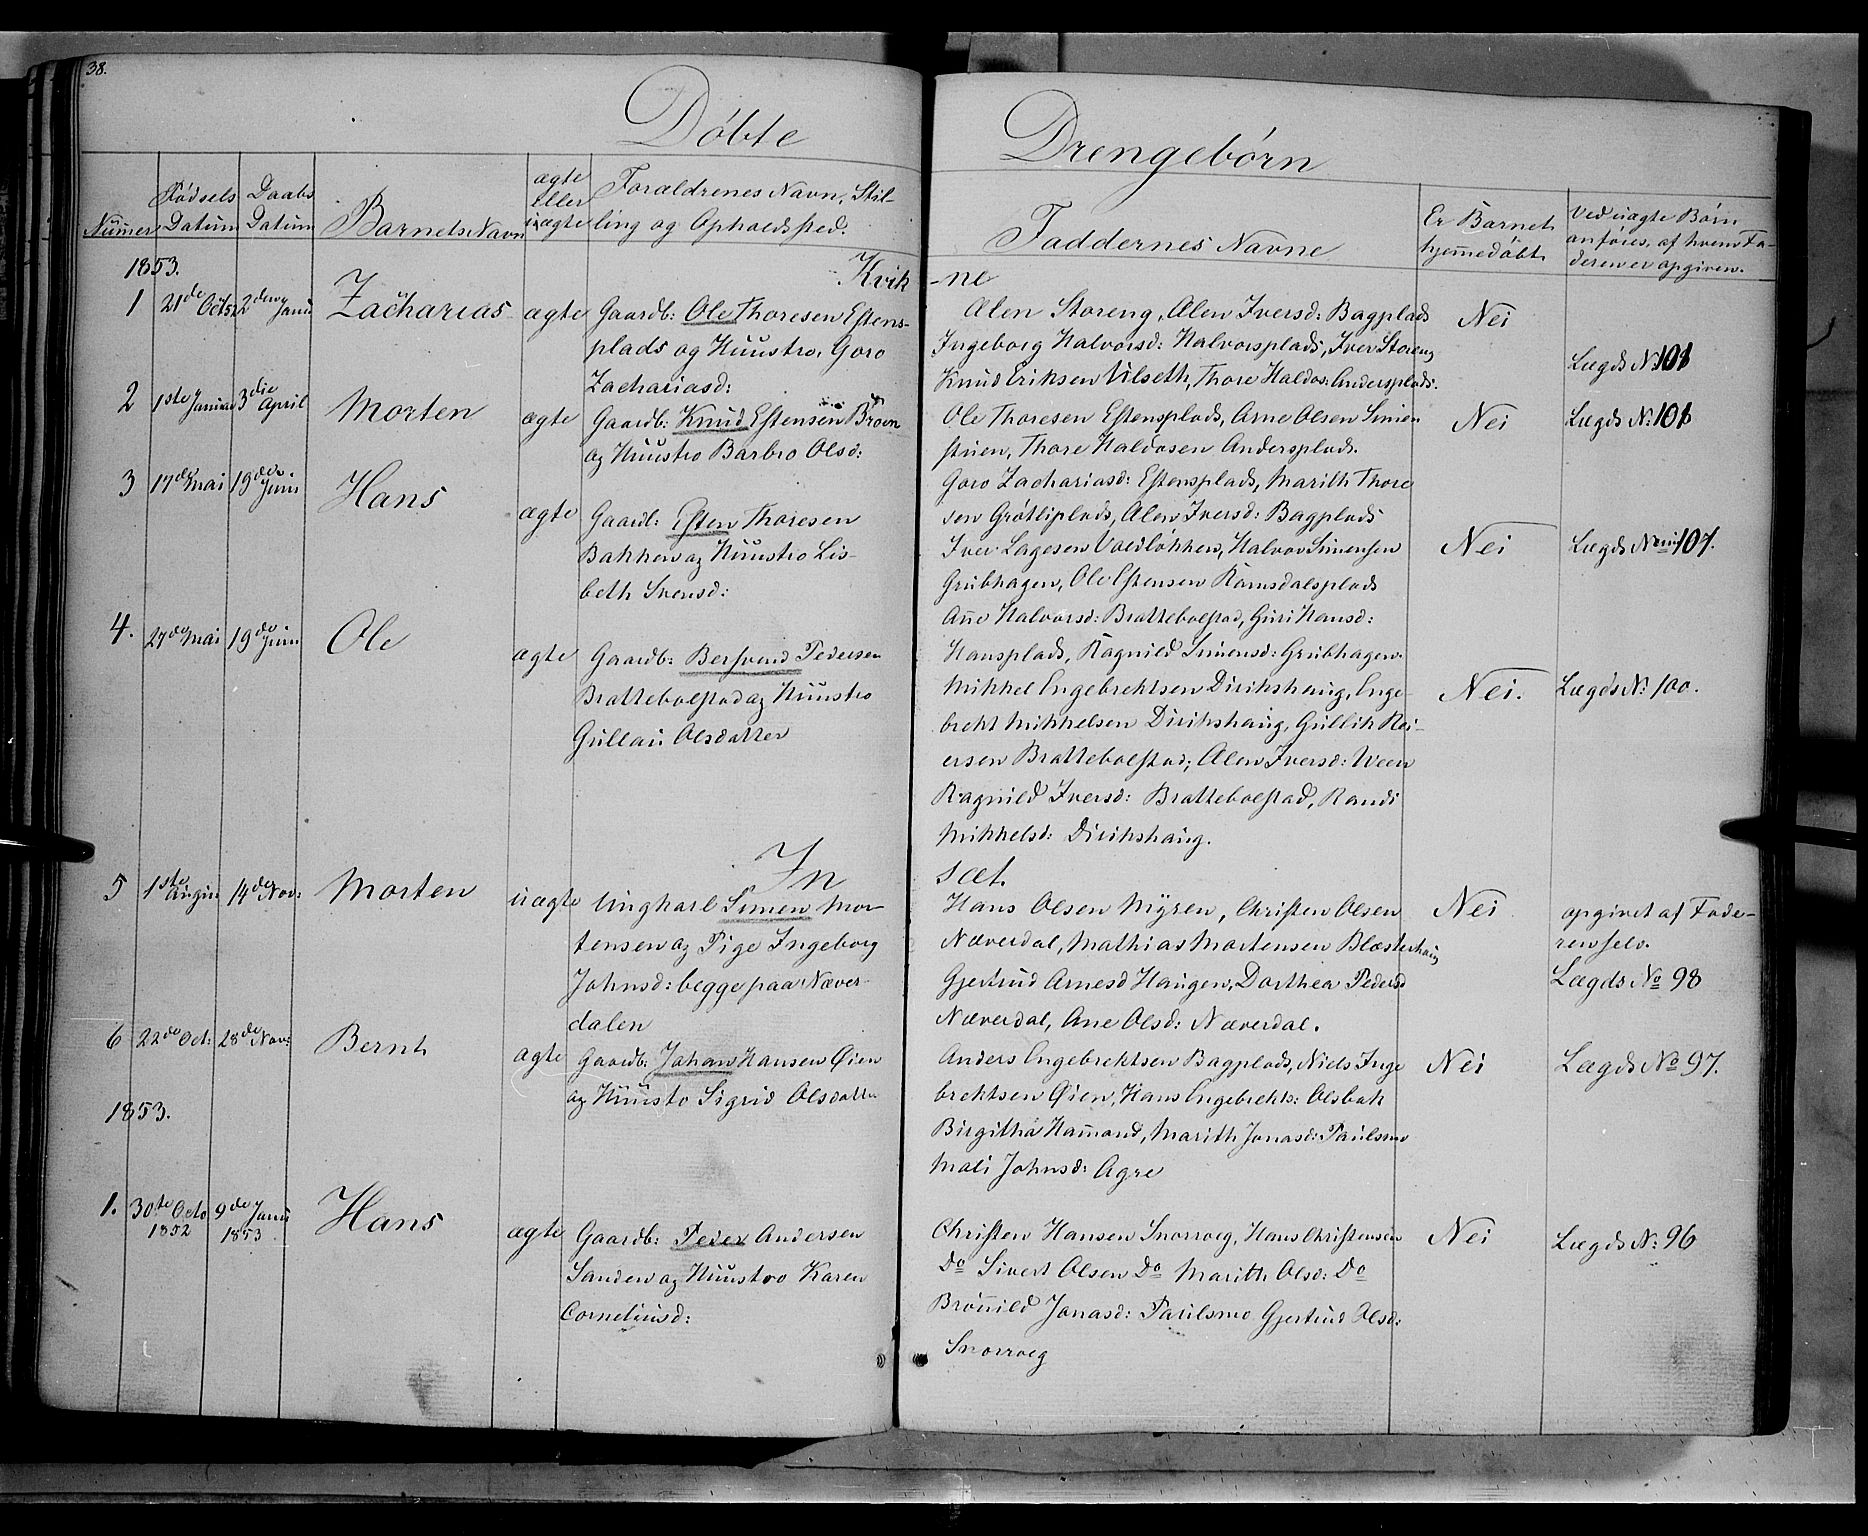 38.
Döbte
Drengebörn
Numer
Födsels Datum
Daabs Datum
Barnets Navn
ægte eller uægte
Forældrenes Navn, Stilling og Opholdssted.
Faddernes Navne
Er Barnet hjemmedöbt
Ved uægte Börn anföres, af hvem Faderen er opgiven.
1853.
Kvikne
1 21de Oct 52 2den Janu Zacharias ægte Gaardb: Ole Thoresen Estens-
plads og Huustro, Goro
Zachariasd:
Alen Storeng, Alen Iversd: Bagplads
Ingeborg Halvorsd: Halvorsplads, Iver Storeng
Knud Eriksen Vilseth, Thore Haldos: Andersplads.
Nei
Lægds N: 101
2 1ste Januar 3die April Morten ægte Gaardb: Knud Estensen Broen
og Huustro Barbro Olsd:
Ole Thoresen Estensplads, Arne Olsen Simen
stuen, Thore Haldosen Andersplads.
Goro Zachariasd: Estensplads, Marith Thore
sen Grötliplads, Alen Iversd: Bagplads
Nei
Lægds N: 101
3 17de Mai 19de Juni Hans ægte Gaardb: Esten Thoresen
Bakken og Huustro Lis-
beth Svensd:
Iver Lagesen Voldlökken, Halvor Simensen
Grubhagen, Ole Estensen Ramsdalsplads
Ane Halvorsd: Bratteboelstad, Guri Hansd:
Hansplads, Ragnild Simensd: Grubhagen.
Nei
Lægds 107.
4. 27de Mai 19de Juni Ole ægte Gaardb: Bersvend Pedersen
Bratteboelstad og Huustro
Gullau Olsdatter
Mikkel Engebrektsen Dirikshaug, Enge-
brekt Mikkelsen Dirikshaug, Gullik Rei-
ersen Bratteboelstad, Alen Iversd: Veen
Ragnild Iversd: Bratteboelstad, Randi
Mikkelsd: Dirikshaug.
Nei.
Lægds N: 100.
Indset.
5 1ste August 14de Nov: Morten uægte Ungkarl Simen Mor-
tensen og Pige Ingeborg
Johnsd: begge paa Næver-
dalen
Hans Olsen Myren, Christen Olsen
Næverdal, Mathias Mortensen Blæsterhaug
Gjertrud Arnesd Haugen, Dorthea Pedersd
Næverdal, Ane Olsd: Næverdal.
Nei
opgivet af Fade-
ren selv.
Lægds No 98
6 22de Oct: 28de Nov: Bernt ægte Gaardb: Johan Hansen Öien
og Huusto Sigrid Olsdatter
Anders Engebrektsen Bagplads, Niels Inge
brektsen Öien, Hans Engebrekts: Olsbak
Birgitha Hamond, Marith Jonasd: Paulsmo
Mali Johnsd: Agre
Nei
Lægds No 97.
1853.
1. 30te Octo 1852 9de Janu 1853 Hans ægte Gaardb: Peder Andersen
Sanden og Huustro Karen
Corneliusd:
Christen Hansen Snorroeg, Hans Christensen
Do Sivert Olsen Do Marith Olsd: Do
Brönild Jonasd: Paulsmo Gjertrud Olsd:
Snorroeg
Nei
Lægds N: 96